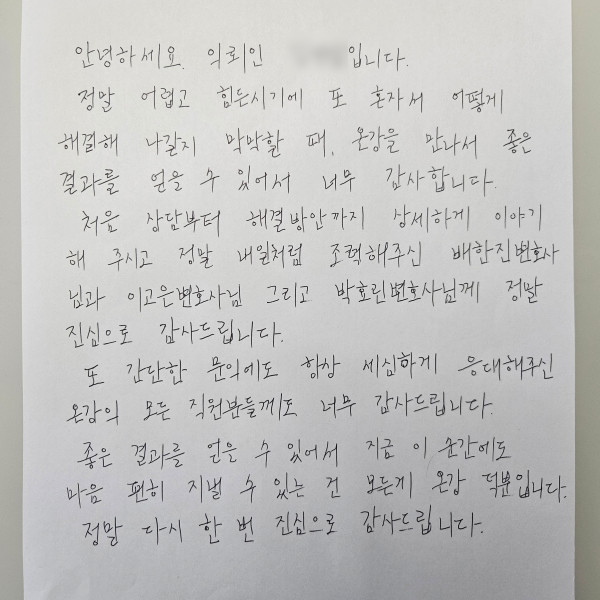 안녕하세요. 의뢰인 입니다.
정말 어렵고 힘든시기에 또 혼자서 어떻게
해결해 나갈지 막막할 때, 온강을 만나서 좋은
결과를 얻을 수 있어서 너무 감사합니다.
처음 상담부터 해결방안까지 상세하게 이야기
해 주시고 정말 내일처럼 조력해주신 배한진변호사
님과 이고은변호사님 그리고 박효린변호사님께 정말
진심으로 감사드립니다.
또 간단한 문의에도 항상 세심하게 응대해주신
온강의 모든 직원분들께도 너무 감사드립니다.
좋은 결과를 얻을 수 있어서 지금 이 순간에도
마음 편히 지낼 수 있는 건 모든게 온강 덕분입니다.
정말 다시 한 번 진심으로 감사드립니다.